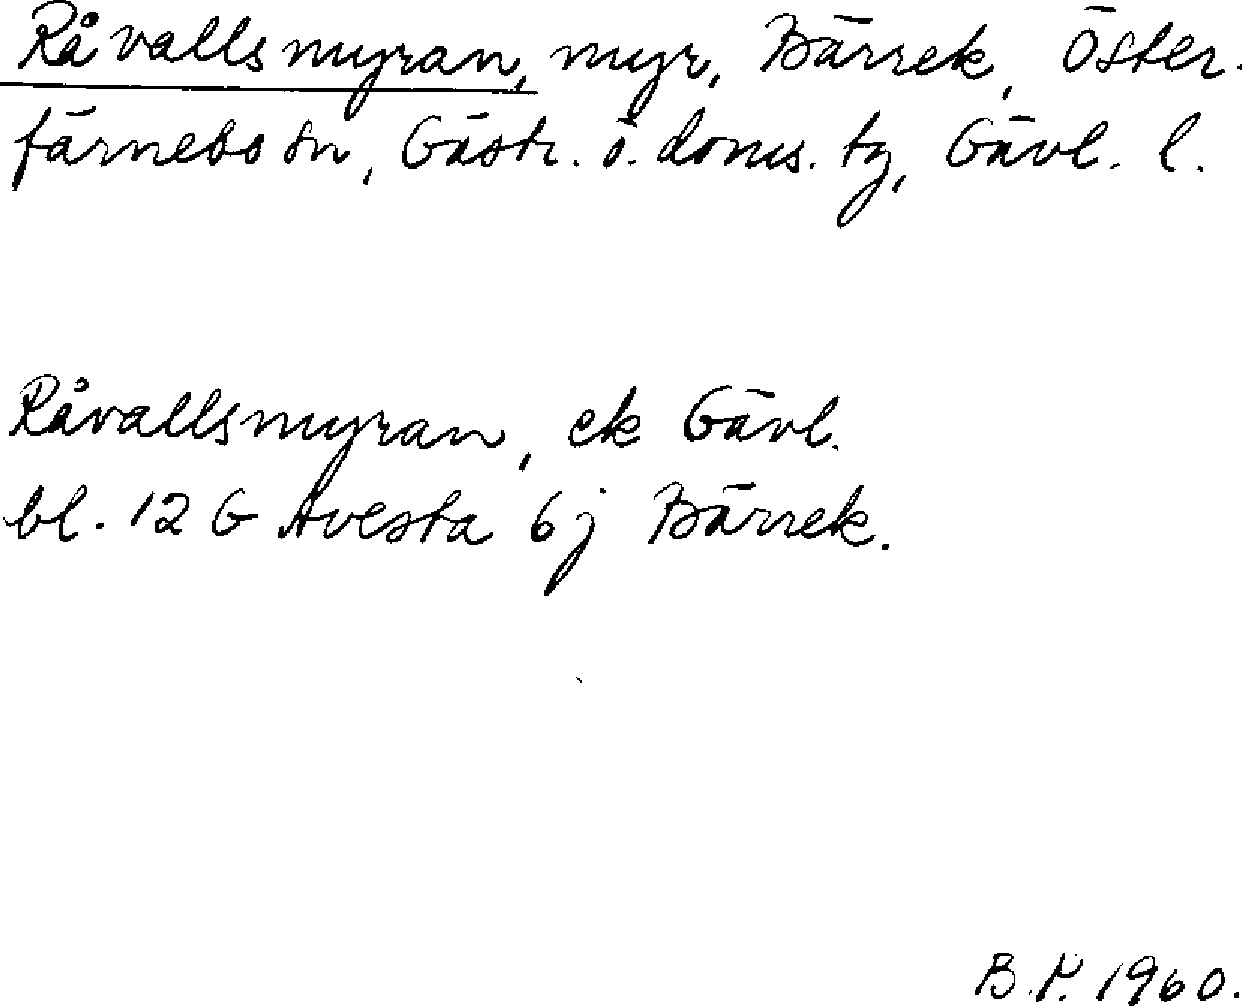 Råvallsmyran, myr, Bärrek, Öster-
färnebo sn, Gästr. ö. doms. tg, Gävl. l.
Råvallsmyran, ek Gävl.
bl. 12 G Avesta 6j Bärrek.
B. 1960.